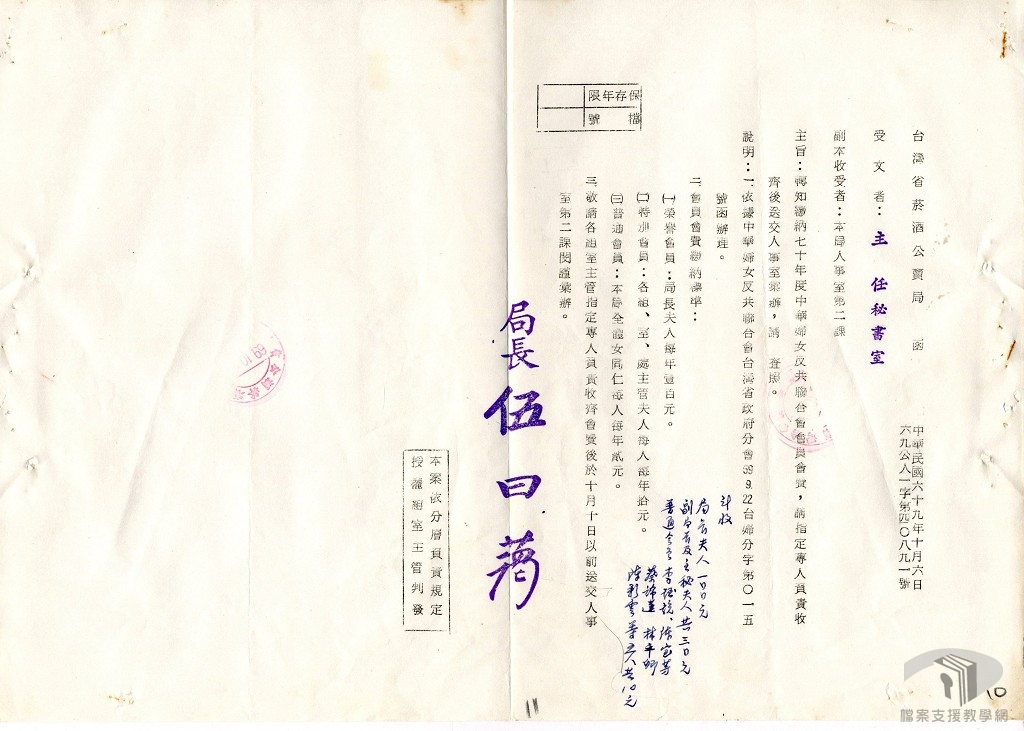 保存年限
檔號
台灣省菸酒公賣局 函
中華民國六十九年十月六日
六九公人一字第四〇八九一號
受文者：主任秘書室
副本收受者：本局人事室第二課
主旨：轉知繳納七十年度中華婦女反共聯合會會員會費，請指定專人負責收
齊後送交人事室彙辦，請 查照。
說明：一、依據中華婦女反共聯合會台灣省政府分會69.9.22台婦分字第〇一五
號函辦理。
二、會員會費繳納標準：
㈠榮譽會員：局長夫人每年壹百元。
㈡特別會員：各組、室、處主管夫人每人每年拾元。
㈢普通會員：本局全體女同仁每人每年貳元。
三、敬請各組室主管指定專人負責收齊會費後於十月十日以前送交人事
室第二課閔謹彙辦。
計收
局長夫人一〇〇元
副局長及主秘夫人共三〇元
普通會員李
林平卿
陳彩雲等五人共10元
局長 伍曰藹
本案依分層負責規定
授權組室主管判發
10
檔案支援教學網